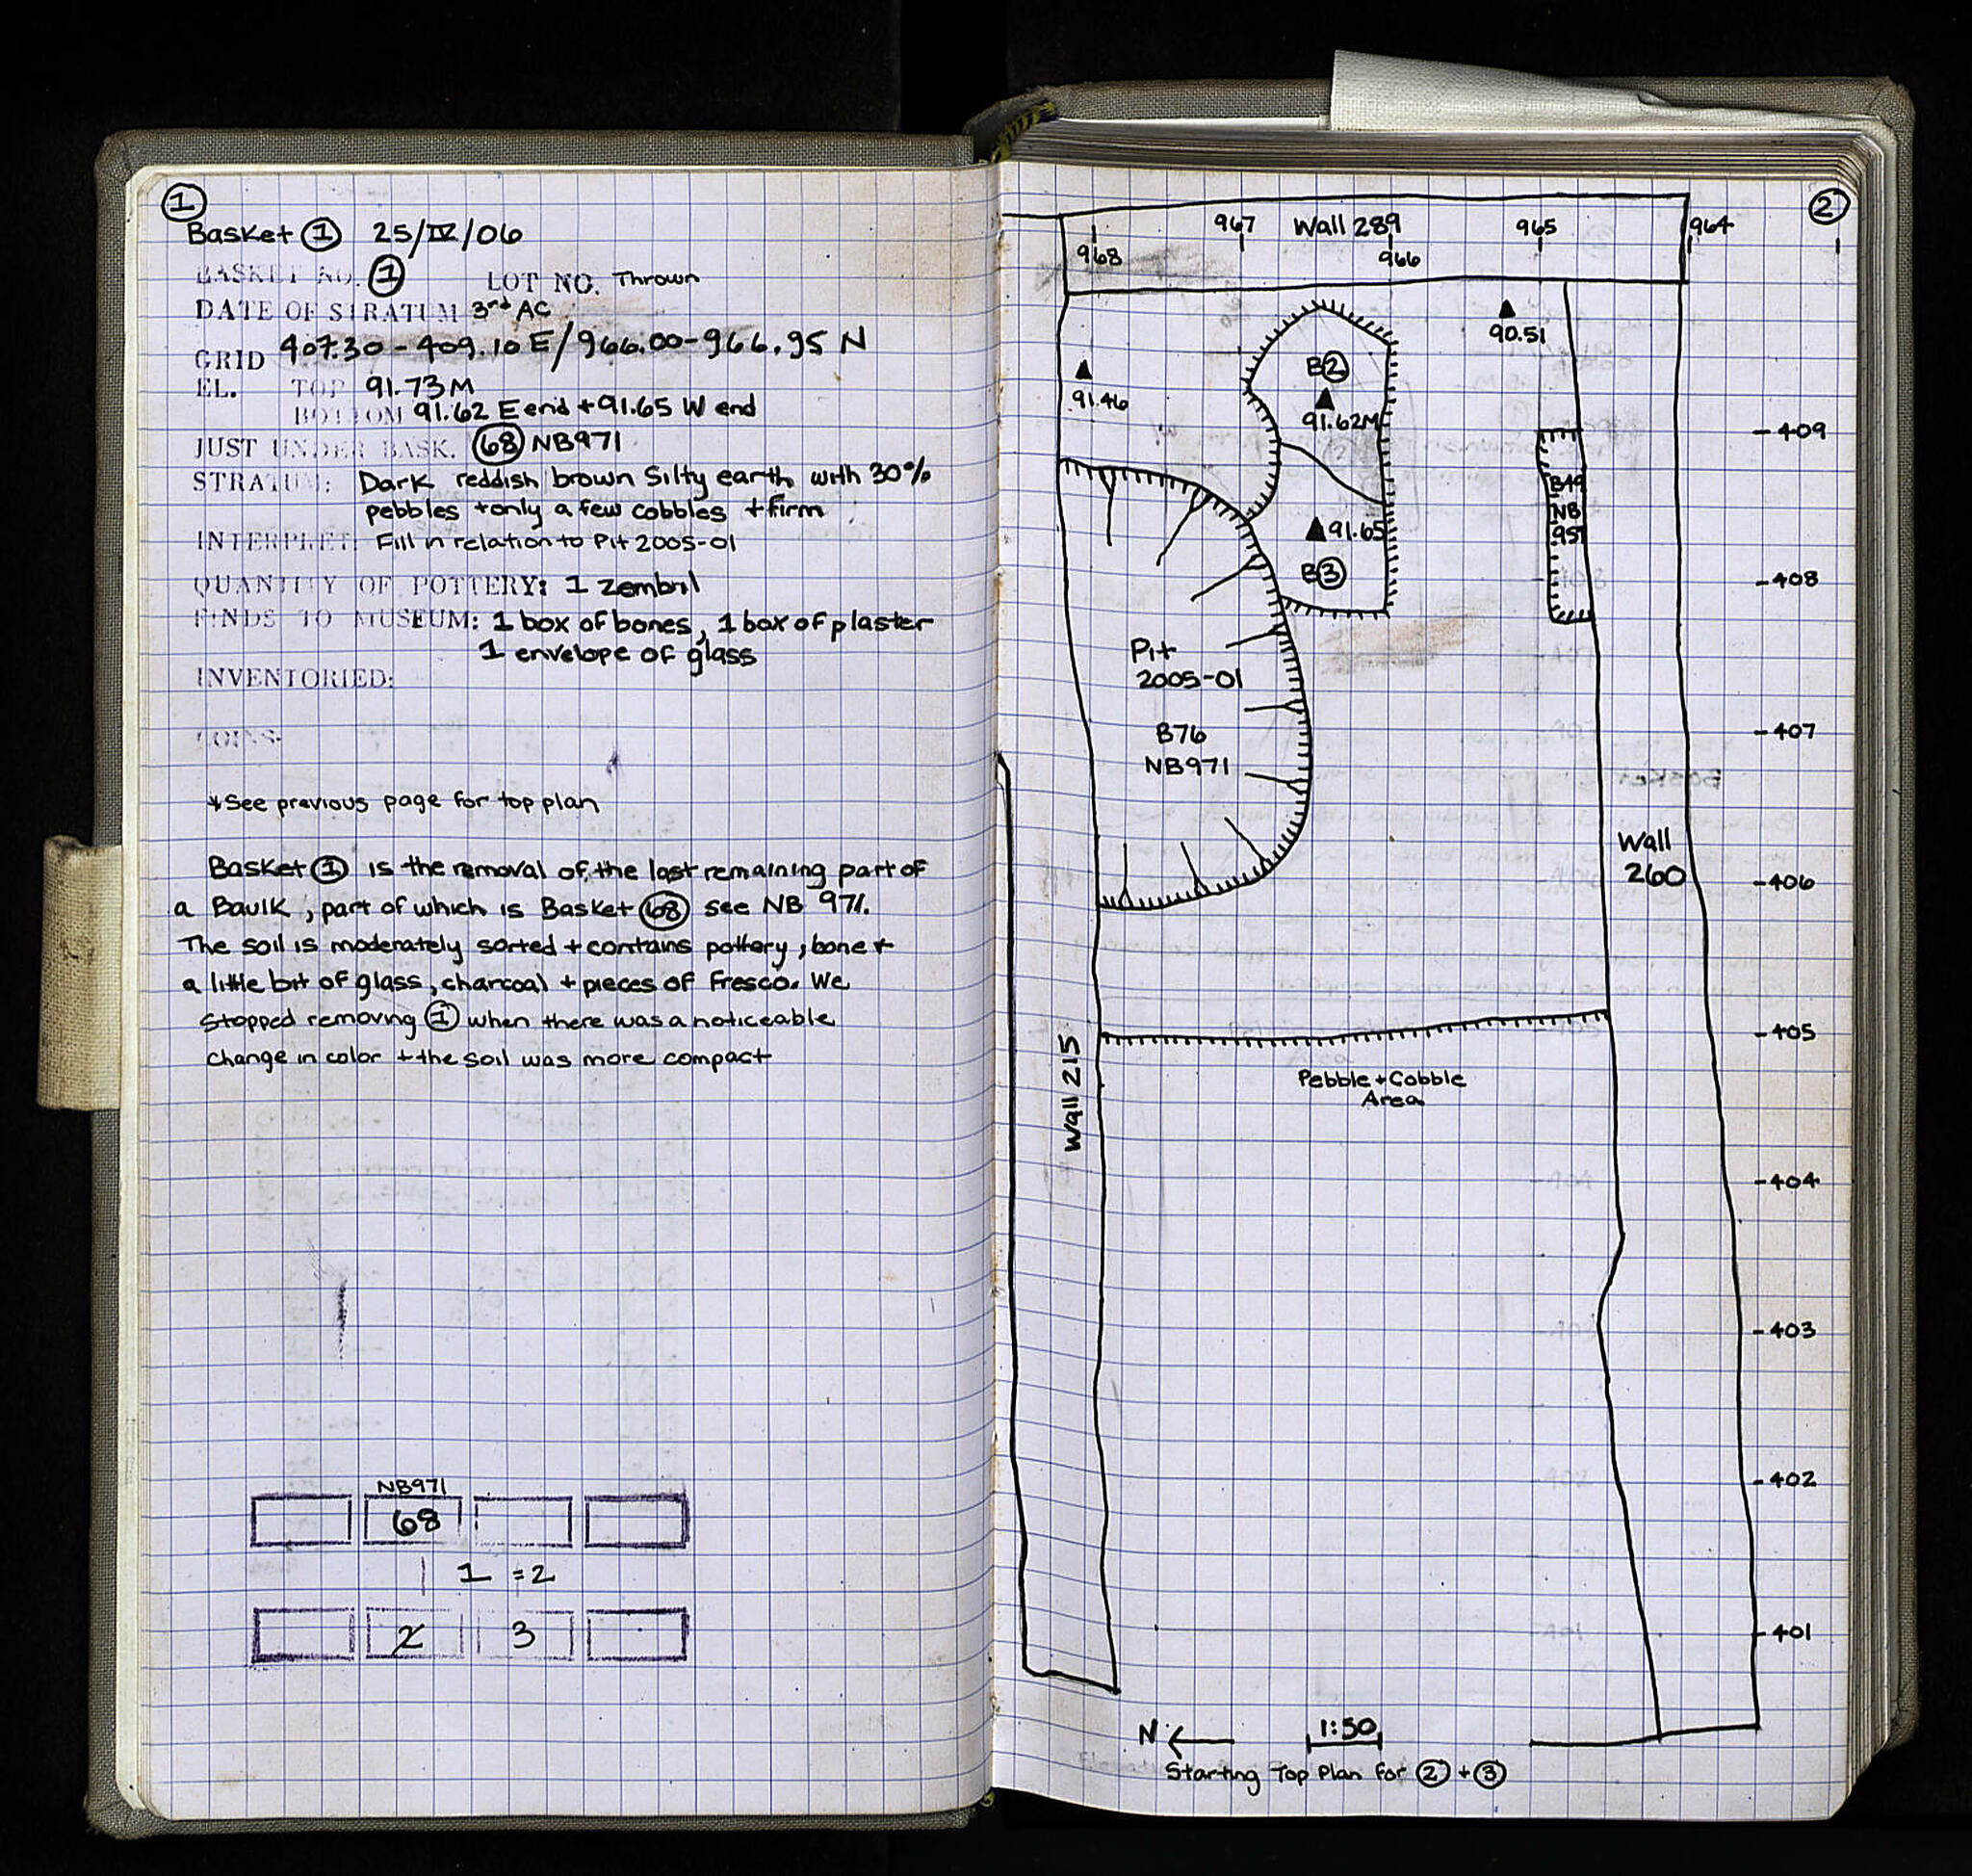 1
Basket 1 25/IV/06
BASKET NO. 1 LOT NO. Thrown
DATE OF STRATUM 3rd AC
GRID 407.30 - 409.10 E/966.00-966.95 N
EL. TOP 91.73M
BOTTOM 91.62 E end + 91.65 W end
JUST UNDER BASK. 68 NB971
STRATUM: Dark reddish brown silty earth with 30%
pebbles + only a few cobbles + firm
INTERPRET: Fill in relation to Pit 2005-01
QUANTITY OF POTTERY: 1 zembil
FINDS TO MUSEUM: 1 box of bones, 1 box of plaster
1 envelope of glass
INVENTORIED:
COINS:
*See previous page for top plan
Basket 1 is the removal of the last remaining part of
a Baulk, part of which is Basket 68 see NB 971.
The soil is moderately sorted + contains pottery, bone +
a little bit of glass, charcoal + pieces of fresco. We
stopped removing 1 when there was a noticeable
change in color + the soil was more compact
NB971
68
1 = 2
2 3
2
967 Wall 289 965 964
968 966
90.51
B2
91.46
91.62M
-409
B49
NB
951
91.65
B3
-408
Pit
2005-01
-407
B76
NB971
Wall
260
-406
-405
Wall 215
Pebble + Cobble
Area
-404
-403
-402
-401
N 1:50
Starting Top Plan for 2 + 3